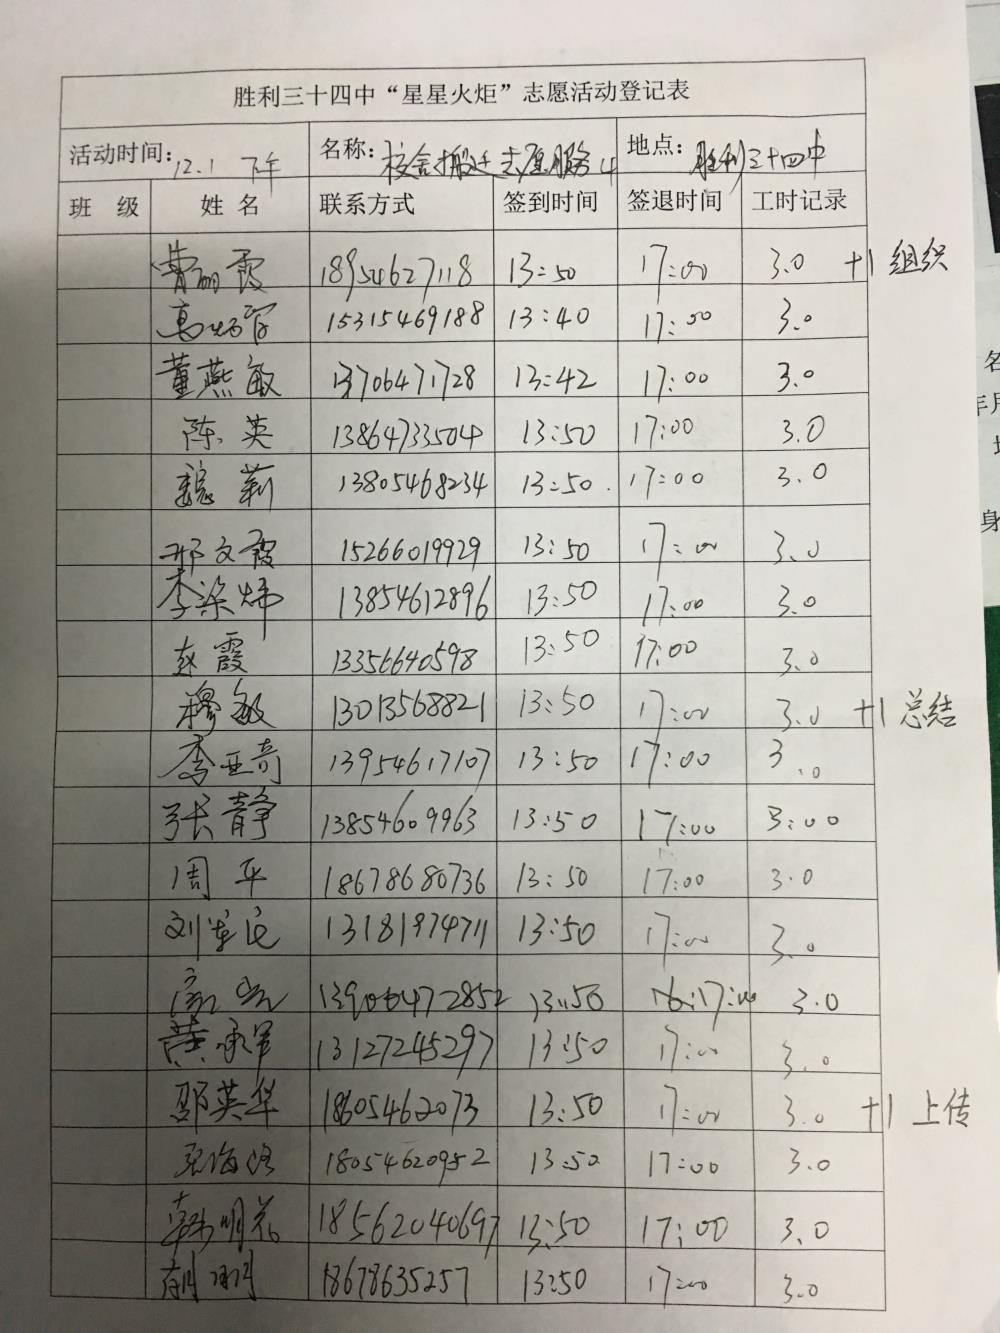 胜利三十四中“星星火炬”志愿活动登记表
活动时间：12.1 下午 名称：校舍搬迁志愿服务4 地点：胜利三十四中
班 级 姓 名 联系方式 签到时间 签退时间 工时记录
曹丽霞 18954627118 13:50 17:00 3.0 +1 组织
高 15315469188 13:40 17:00 3.0
董燕敏 13706471728 13:42 17:00 3.0
陈英 13864733504 13:50 17:00 3.0
魏莉 13805468234 13:50 17:00 3.0
邢文霞 15266019929 13:50 17:00 3.0
李 13854612896 13:50 17:00 3.0
赵霞 13356640598 13:50 17:00 3.0
穆敏 13013568821 13:50 17:00 3.0 +1 总结
李亚奇 13954617107 13:50 17:00 3.0
张静 13854609963 13:50 17:00 3:00
周平 18678680736 13:50 17:00 3.0
刘军民 13181974711 13:50 17:00 3.0
13:50 17:00 3.0
黄承军 13127245297 13:50 17:00 3.0
邵英华 18605462073 13:50 17:00 3.0 +1 上传
18054620952 13:50 17:00 3.0
韩明花 18562040697 13:50 17:00 3.0
胡 18678635257 13:50 17:00 3.0
名
年月
身